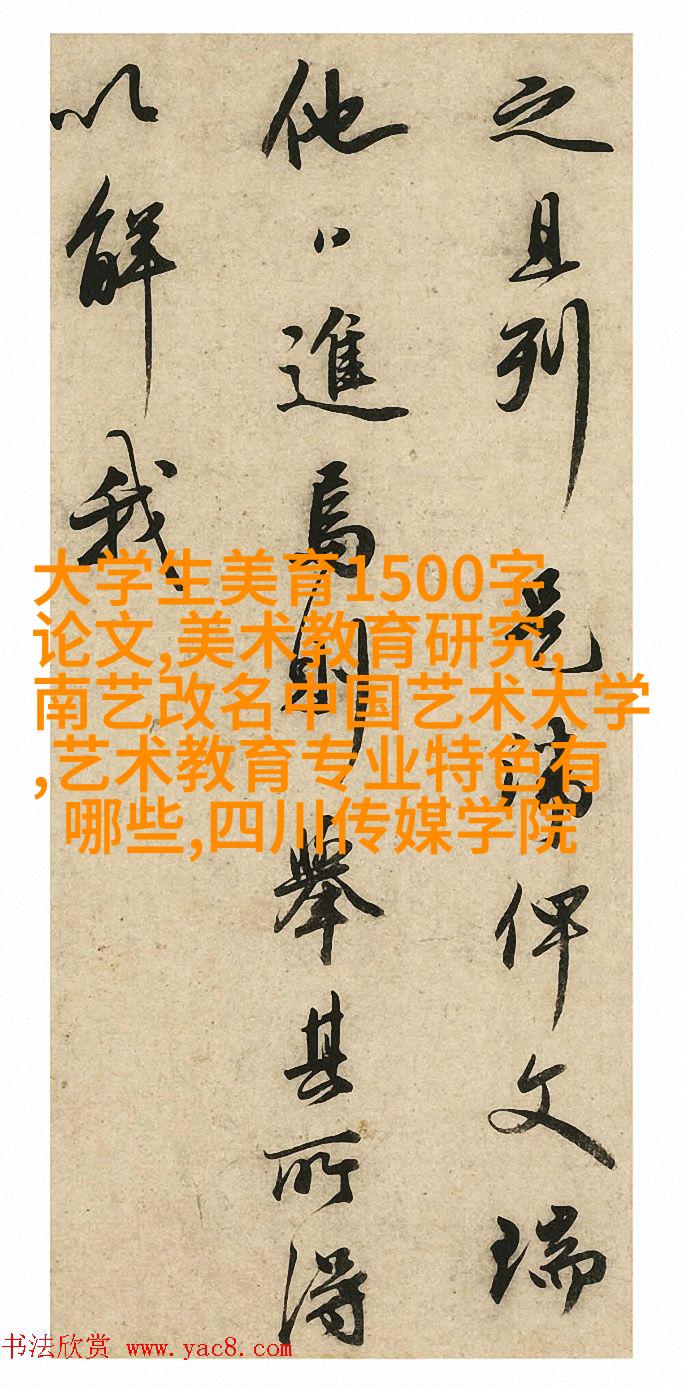 之且列是瑞俾文瑞
他日進焉則舉其所得
以解我
大学生美育1500字
论文,美术教育研究,
南艺改名中国艺术大学
,艺术教育专业特色有
哪些,四川传媒学院
书法欣赏 www.yac8.com